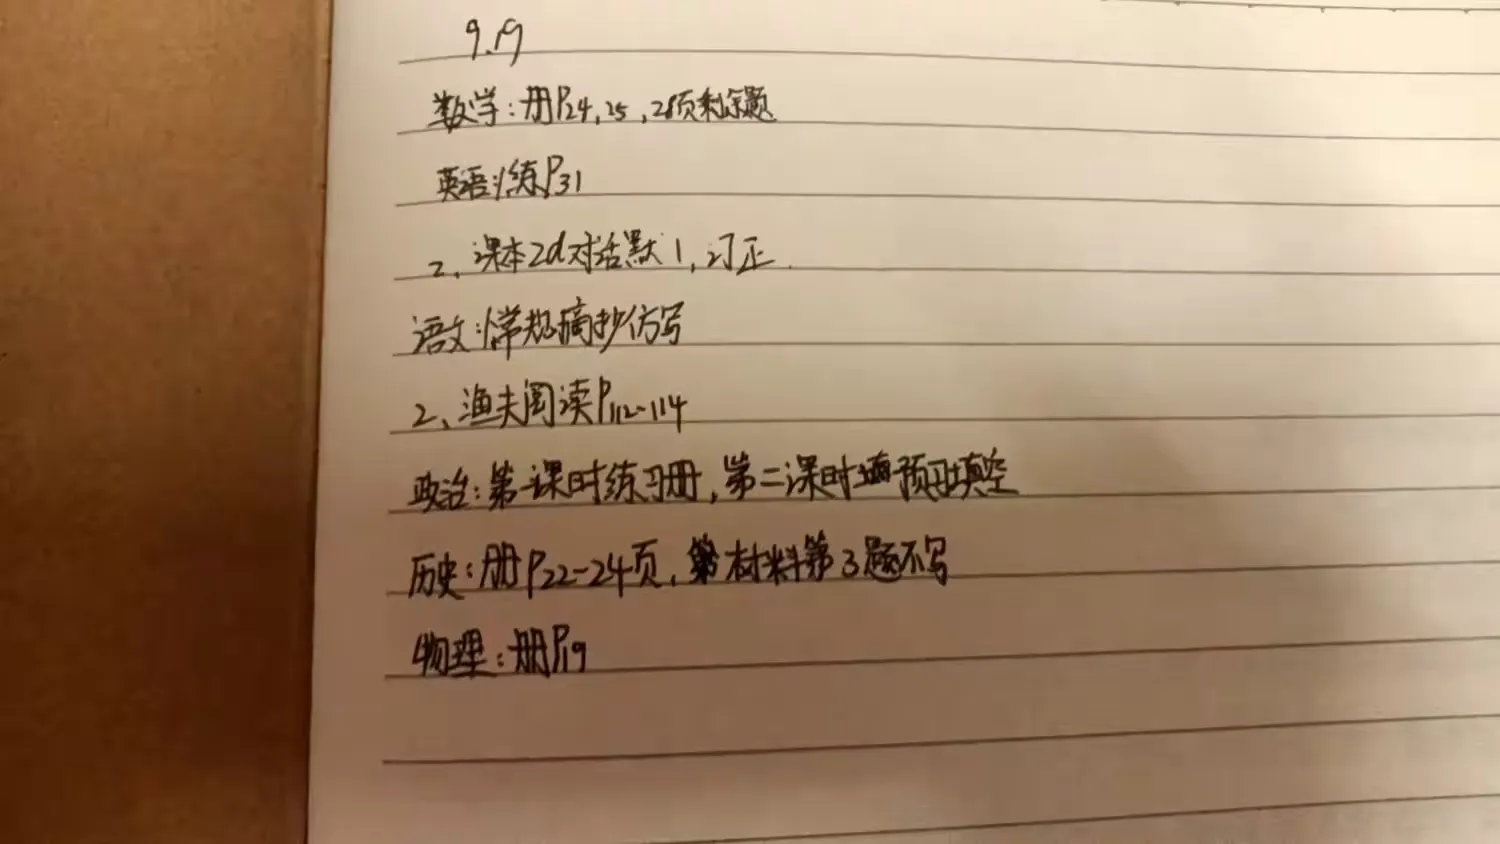 9.19
数学:册P24,25,28页剩余题
英语:1练P31
2、课本2d对话默1,订正.
语文:1常规摘抄仿写
2、渔夫阅读P112-114
政治:第一课时练习册,第二课时预习填空
历史:册P22-24页,材料第3题不写
物理:册P19